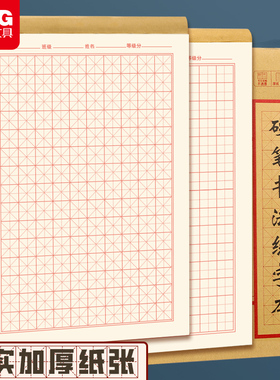 G
具
班级 姓名 等级分
等级分
硬
笔
书
法
练
字
本
实加厚纸张